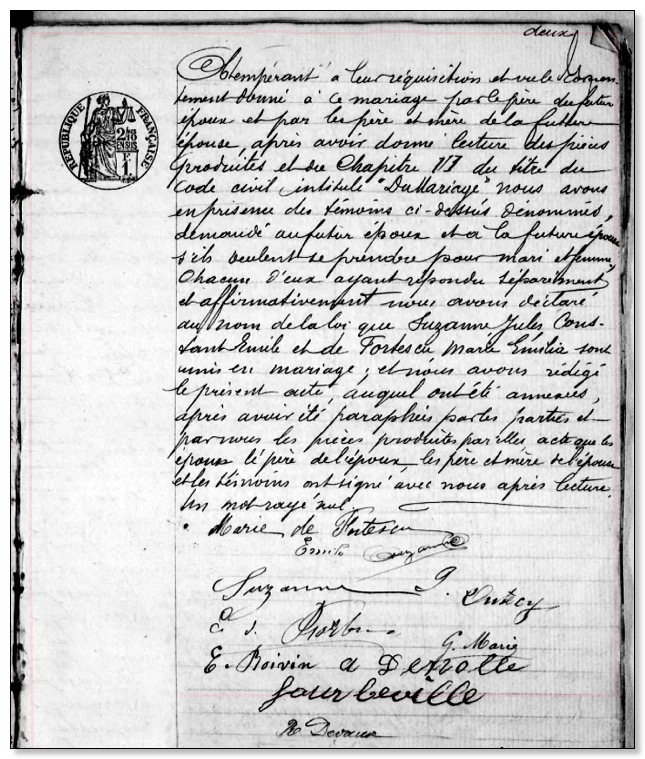 deux
Obtempérant à leur réquisition et vu le Consen-
tement donné à ce mariage par le père du futur
époux et par les père et mère de la future
épouse, après avoir donné lecture des pièces
produites et du Chapitre VI du titre du
Code civil intitulé "Du Mariage" nous avons
en présence des témoins ci-dessus dénommés,
demandé au futur époux et à la future épouse
s'ils veulent se prendre pour mari et femme
Chacun d'eux ayant répondu séparément
et affirmativement nous avons déclaré
au nom de la loi que Suzanne Jules Cons-
tant Emile et de Fortescu Marie Emilie sont
unis en mariage; et nous avons rédigé
le présent acte, auquel ont été annexées,
après avoir été paraphées par les parties et
par nous les pièces produites par elles acte que les
époux le père de l'époux, les père et mère de l'épouse
et les témoins ont signé avec nous après lecture.
Un mot rayé nul.
RÉPUBLIQUE FRANÇAISE
Marie de Fortescu
Emile Suzanne
Suzanne
G. Marie
E. Boivin A Dezolle
Gourbeville
R Devaux